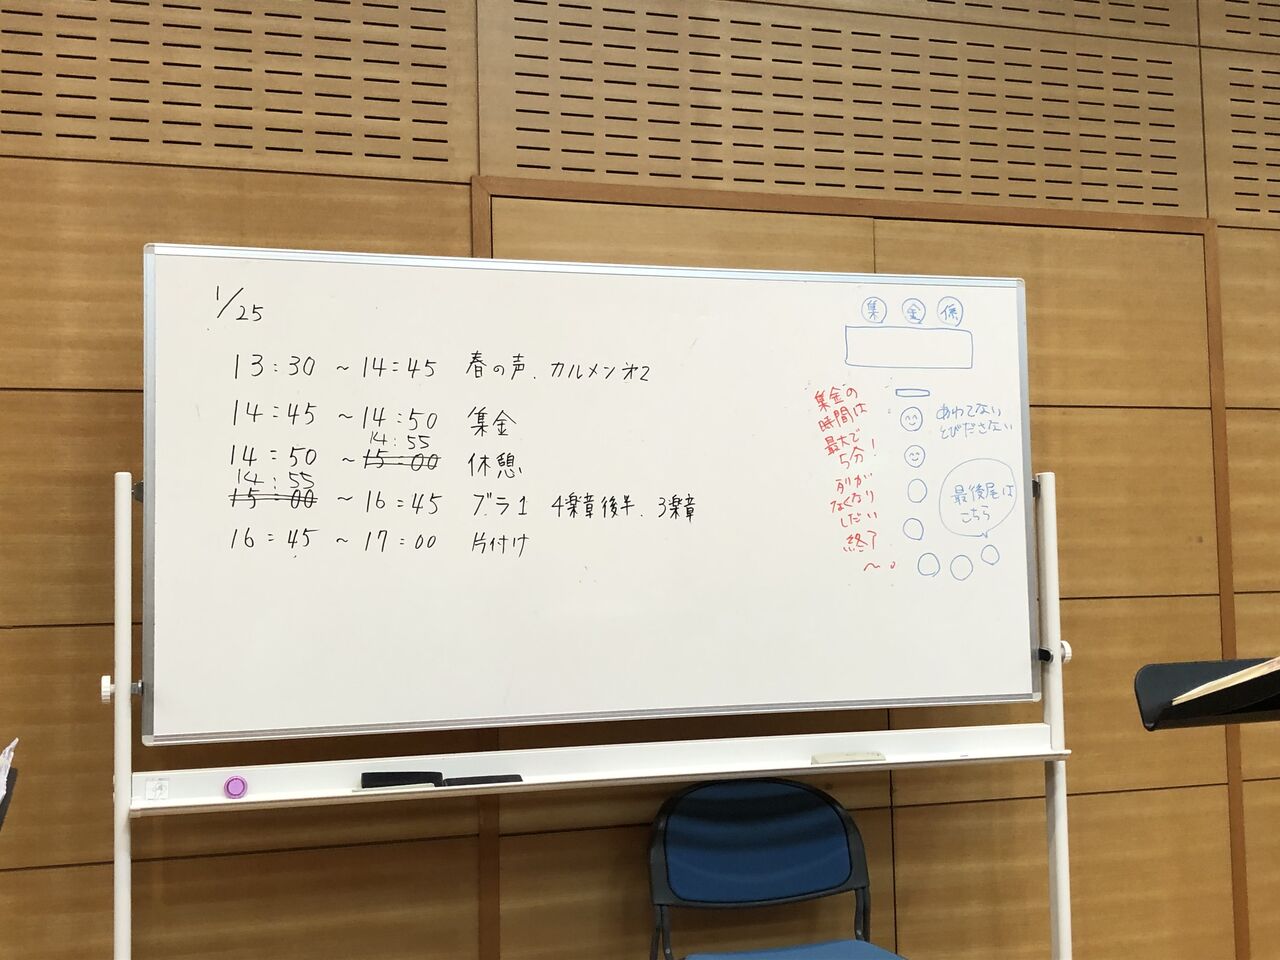 1/25
13:30 ~ 14:45 春の声、カルメンオ2
14:45 ~ 14:50 集金
14:55
14:50 ~ 15:00 休憩
14:55
15:00 ~ 16:45 ブラ1 4楽章後半、3楽章
16:45 ~ 17:00 片付け
集金の
時間は
最大で
5分!
列が
なくなり
しだい
終了
~。
集 金 係
あわてない
とびださない
最後尾は
こちら